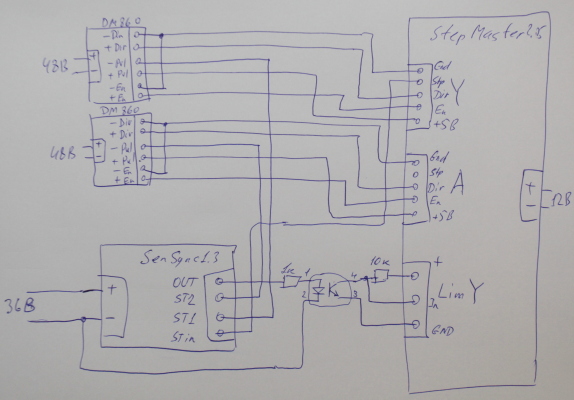 DM860
- Dir
+ Dir
- Pul
+ Pul
- En
+ En
+
-
48В
DM860
- Dir
+ Dir
- Pul
+ Pul
- En
+ En
+
-
48В
StepMaster2.5
Gnd
Stp
Dir
En
+5В
Y
Gnd
Stp
Dir
En
+5В
A
+
-
12В
SenSync1.3
OUT
ST2
ST1
STin
+
-
36В
1к
1
2
4
3
10к
+
In
GND
Lim Y